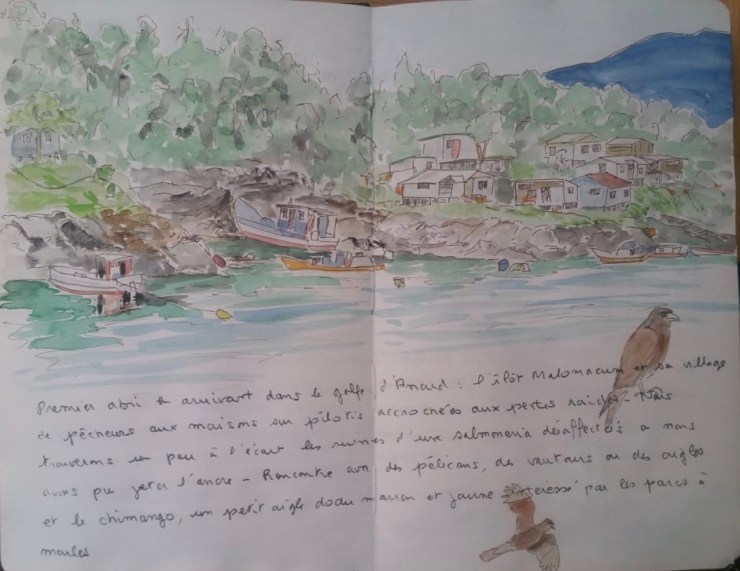 Premier abri en arrivant dans le golfe d'Ancud : l'îlôt Malomacun et sa village
de pêcheurs aux maisons sur pilotis accrochées aux pentes raides - Nous
trouvons un peu à l'écart les ruines d'une salmoneria désaffectée a nous
avons pu jeter l'ancre - Rencontre avec des pélicans, des vautours ou des aigles
et le chimango, un petit aigle dodu marron et jaune intéressé par les parcs à
moules